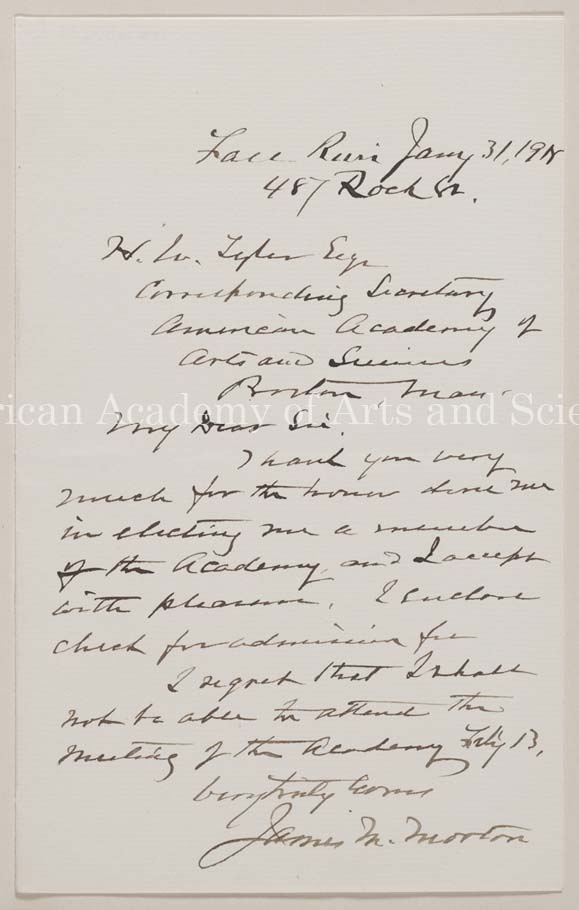 Fall River Jany 31, 19
487 Rock St.
H. W. Tyler Esqr
Corresponding Secretary
American Academy of
Arts and Sciences
Boston, Mass.
rican Academy of Arts and Scie
My Dear Sir.
Thank you very
much for the honor done me
in electing me a member
of the Academy, and I accept
with pleasure. I enclose
check for admission fee
I regret that I shall
not be able to attend the
meeting of the Academy Feby 13,
Very truly yours
James M. Morton